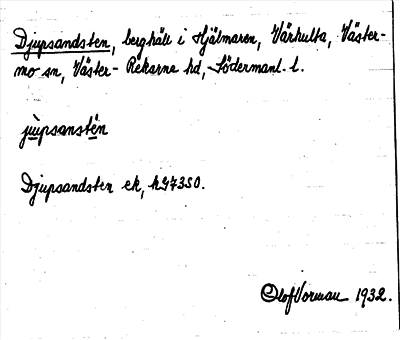 Djupsandsten, berghäll i Hjälmaren, Värhulta, Väster-
mo sn, Väster-Rekarne hd, Södermanl. l.
jùupsanstén
Djupsandsten ek, hG7350.
Olof Vorman 1932.